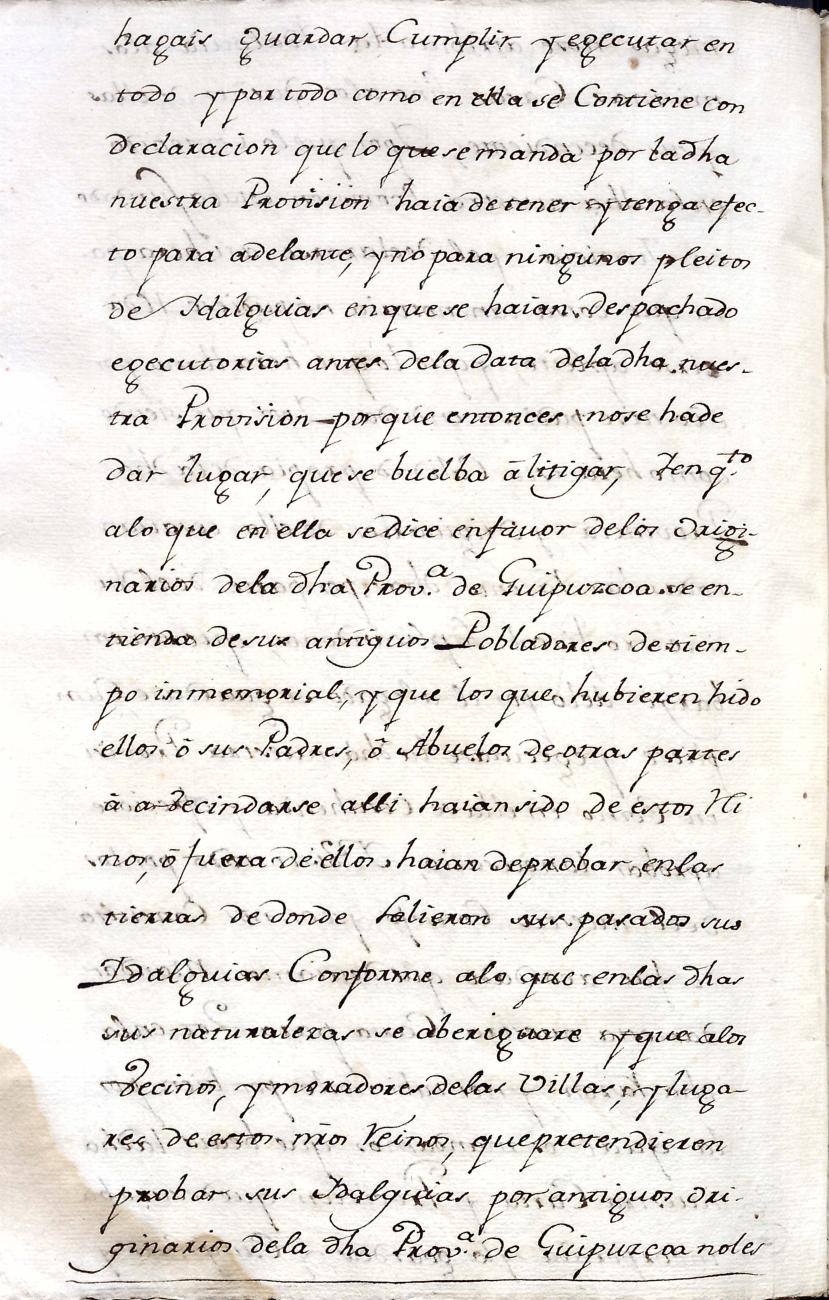 hagais guardar Cumplir y egecutar en
todo y por todo como en ella se Contiene con
declaracion que lo que se manda por la dha
nuestra Provision haia de tener y tenga efec-
to para adelante, y no para ningunos pleitos
de Idalguias en que se haian despachado
egecutorias antes de la data de la dha nues-
tra Provision porque entonces no se ha de
dar lugar, que se buelba â litigar, Ien q.to
a lo que en ella se dice en favor de los Origi-
narios de la dha Prov.a de Guipuzcoa se en-
tienda de sus antiguos Pobladores de tiem-
po inmemorial, y que los que hubieren hido
ellos ô sus Padres, ô Abuelos de otras partes
â avecindarse alli haian sido de estos Rei
nos, ô fuera de ellos haian de probar en las
tierras de donde salieron sus pasados sus
Idalguias Conforme a lo que en las dhas
sus naturalezas se aberiguare y que a los
Vecinos, y moradores de las Villas, y luga-
res de estos nros Reinos, que pretendieren
probar sus Idalguias por antiguos ori-
ginarios de la dha Prov.a de Guipuzcoa no les